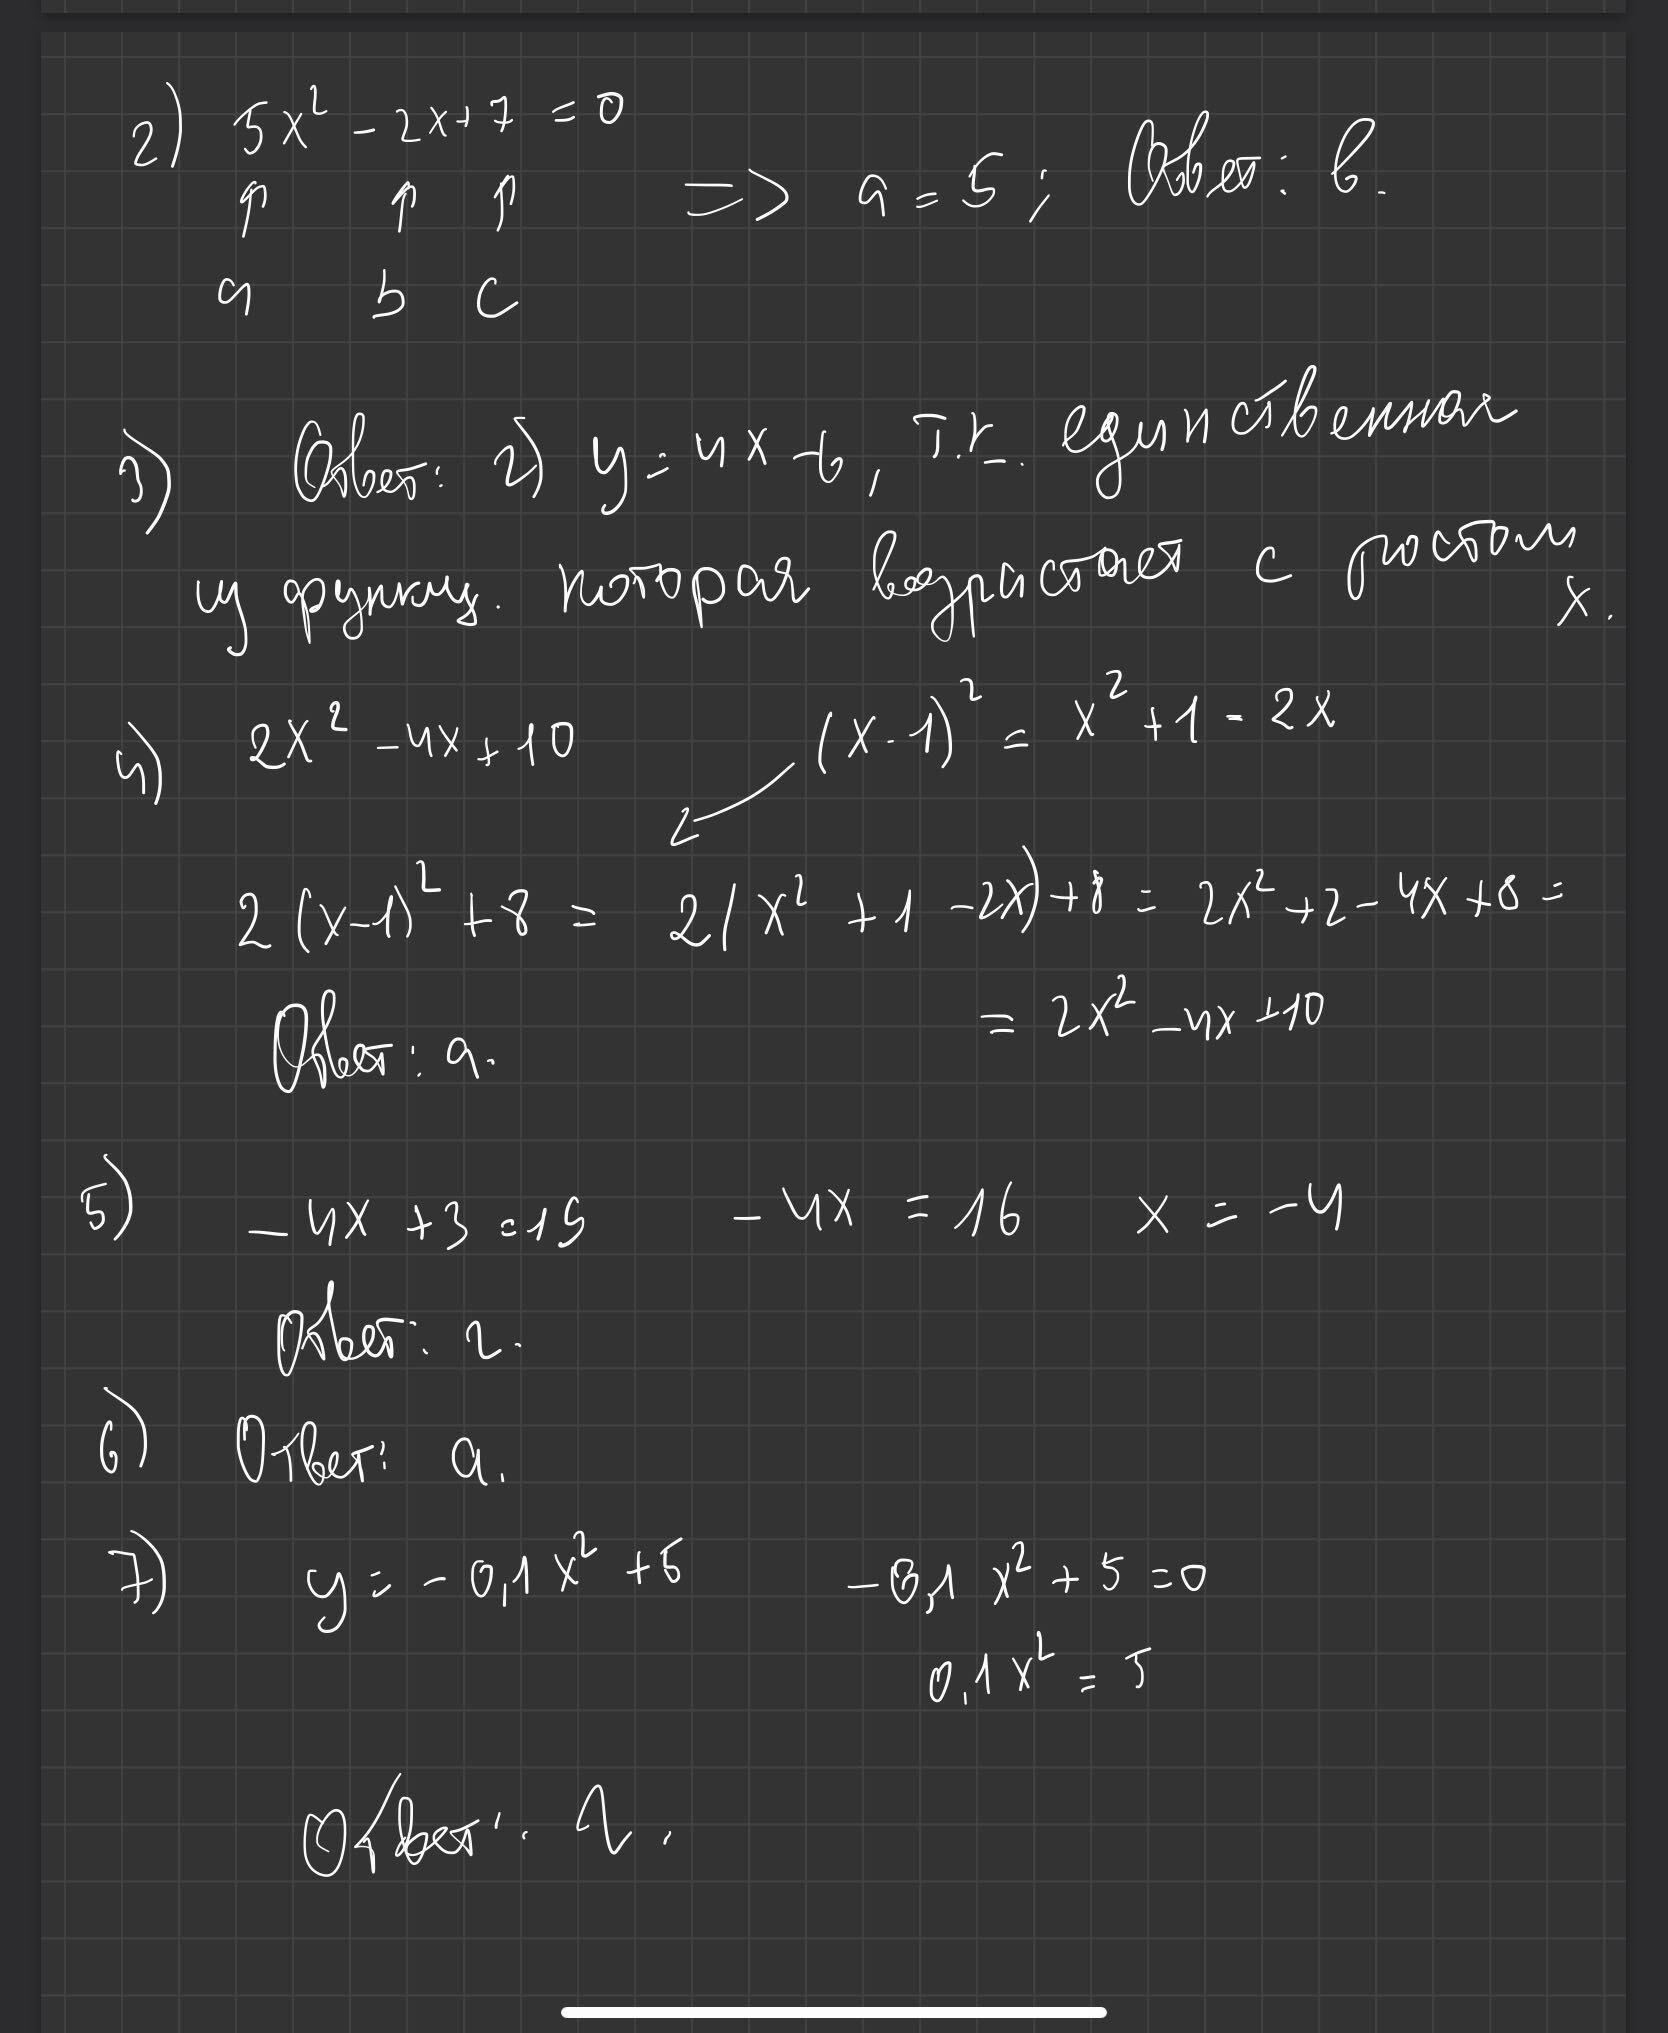 2) 5x² - 2x + 7 = 0
↑ ↑ ↑ => a = 5; Ответ: в.
a b c
3) Ответ: г) y = 4x - 6, т.к. единственная
из функц. которая возрастает с ростом
x.
4) 2x² - 4x + 10 (x - 1)² = x² + 1 - 2x
2(x-1)² + 8 = 2(x² + 1 - 2x) + 8 = 2x² + 2 - 4x + 8 =
= 2x² - 4x + 10
Ответ: а.
5) -4x + 3 = 19 -4x = 16 x = -4
Ответ: г.
6) Ответ: а.
7) y = -0,1x² + 5 -0,1x² + 5 = 0
0,1x² = 5
Ответ: г.